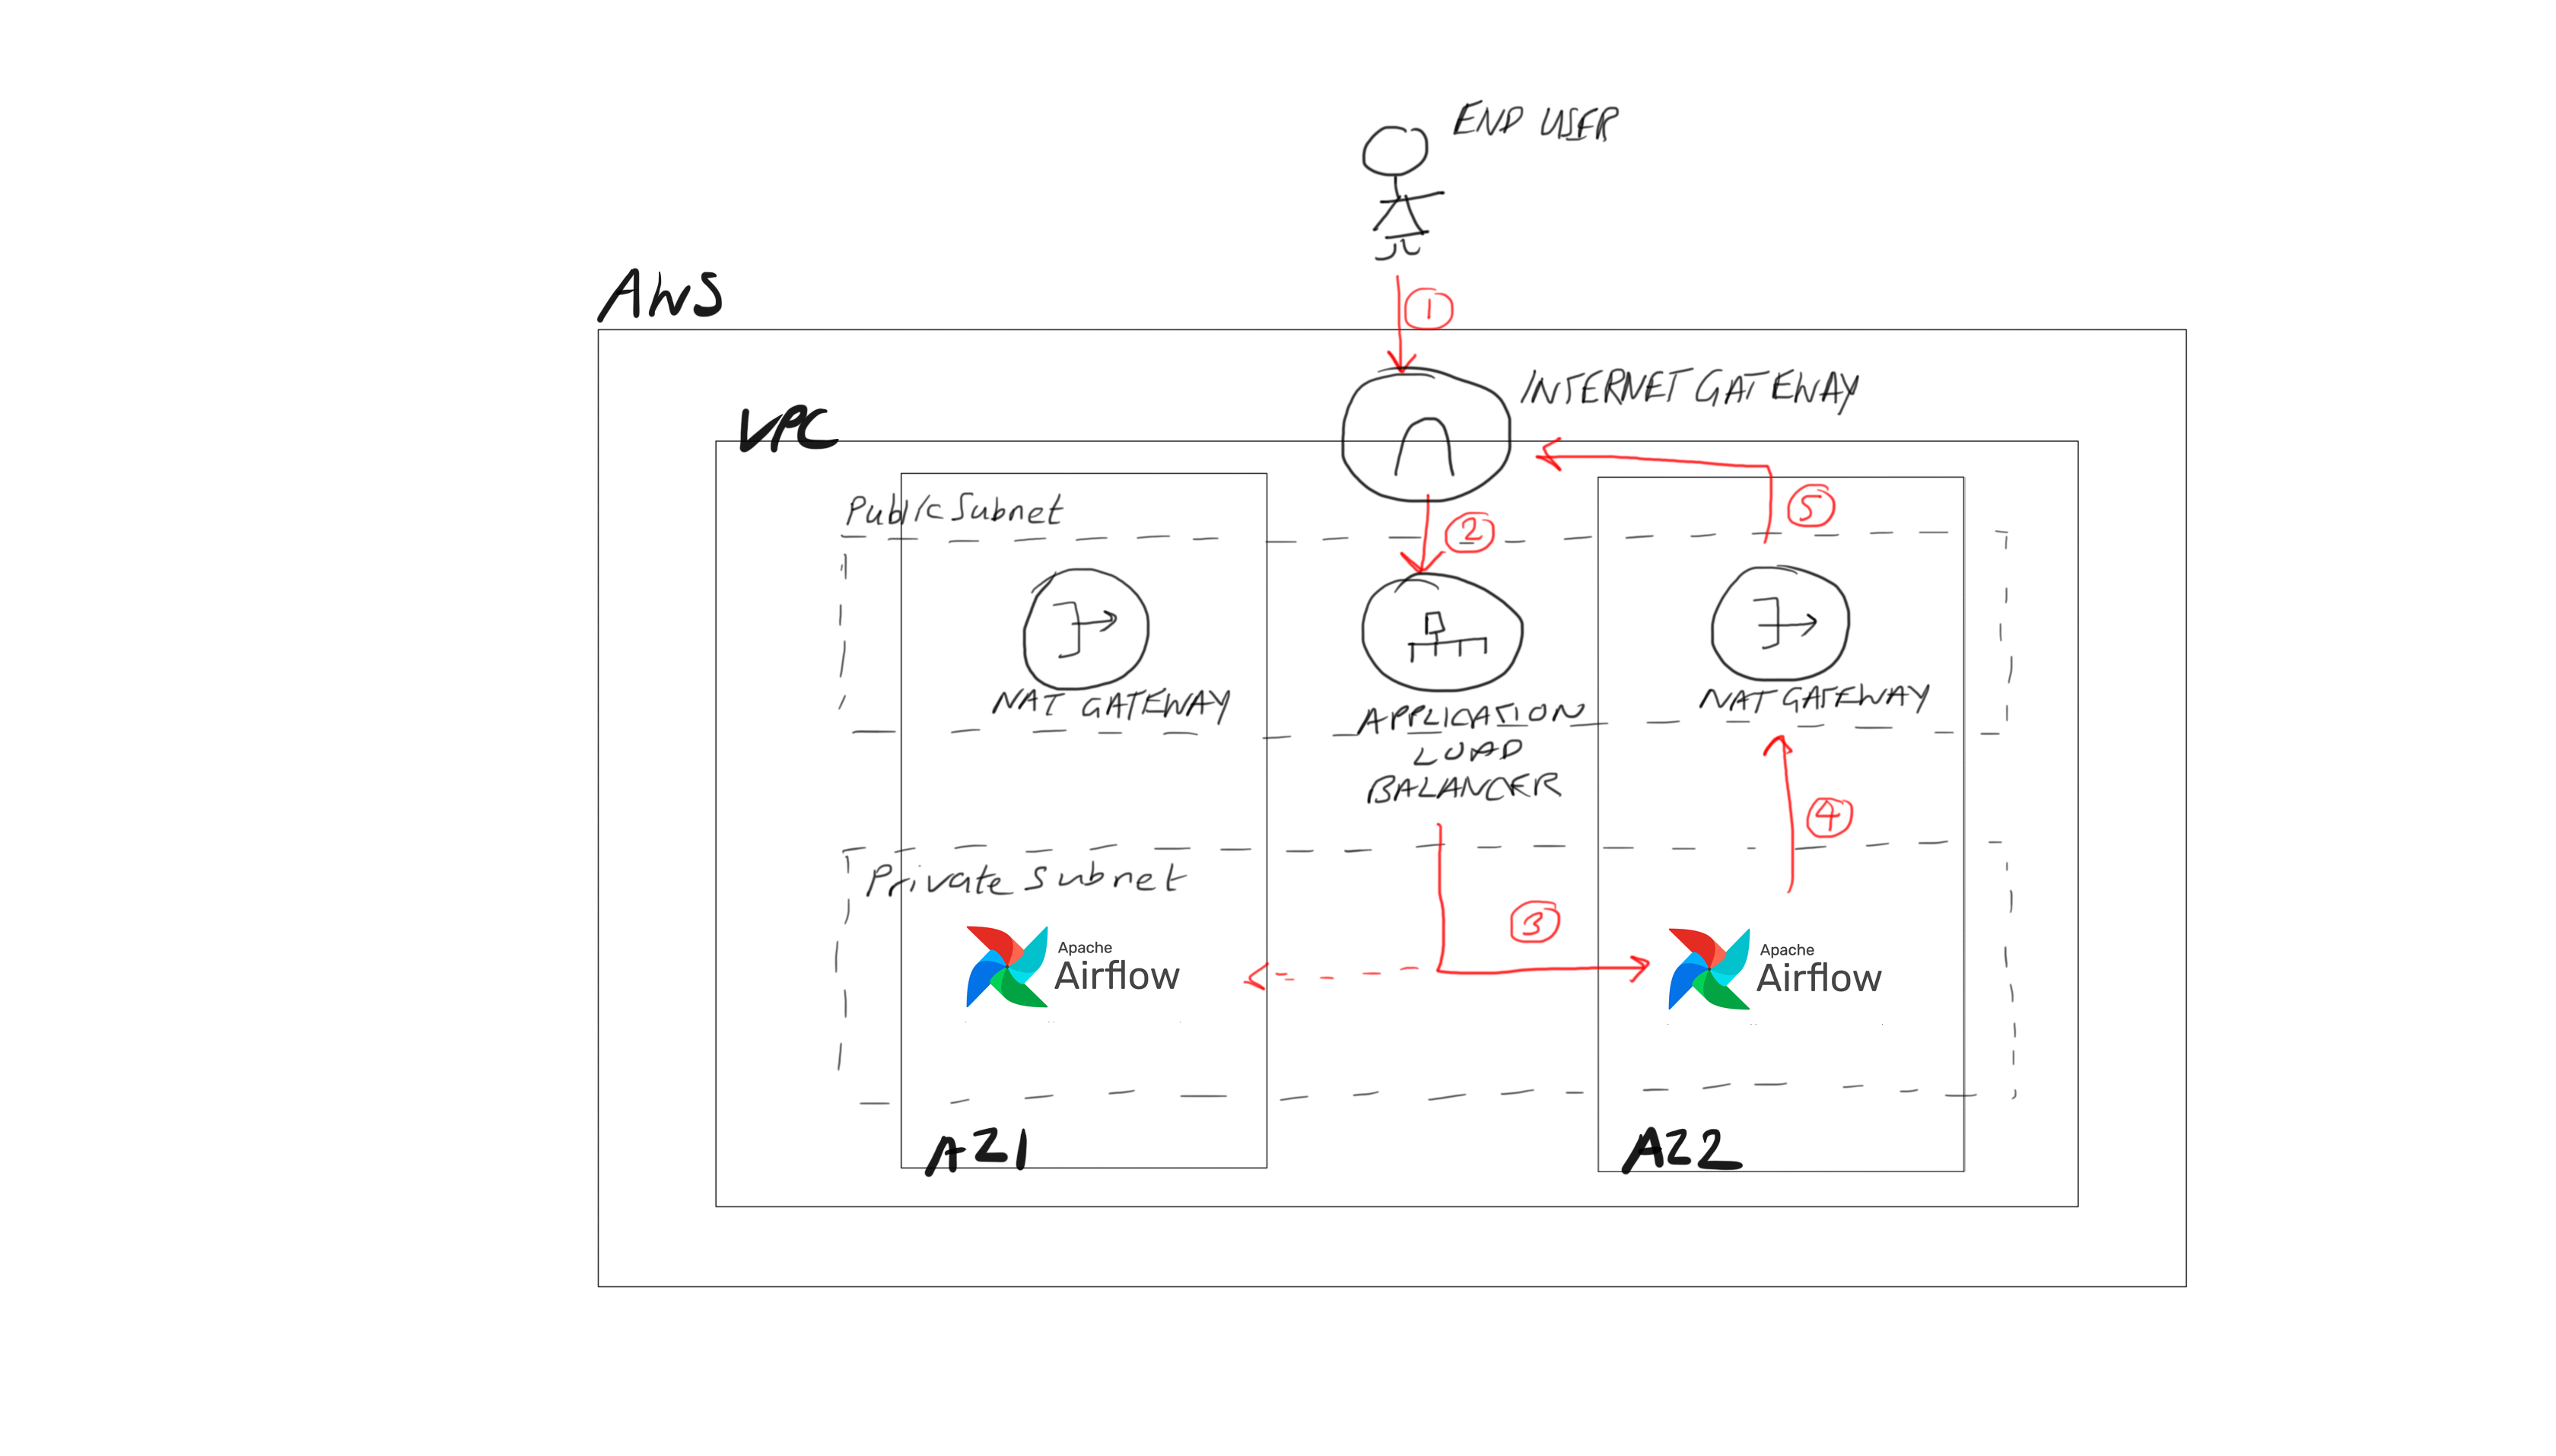 END USER
AWS
1
INTERNET GATEWAY
VPC
Public Subnet
5
2
NAT GATEWAY
APPLICATION
LOAD
BALANCER
NAT GATEWAY
4
Private Subnet
3
Apache
Airflow
Apache
Airflow
AZ1
AZ2